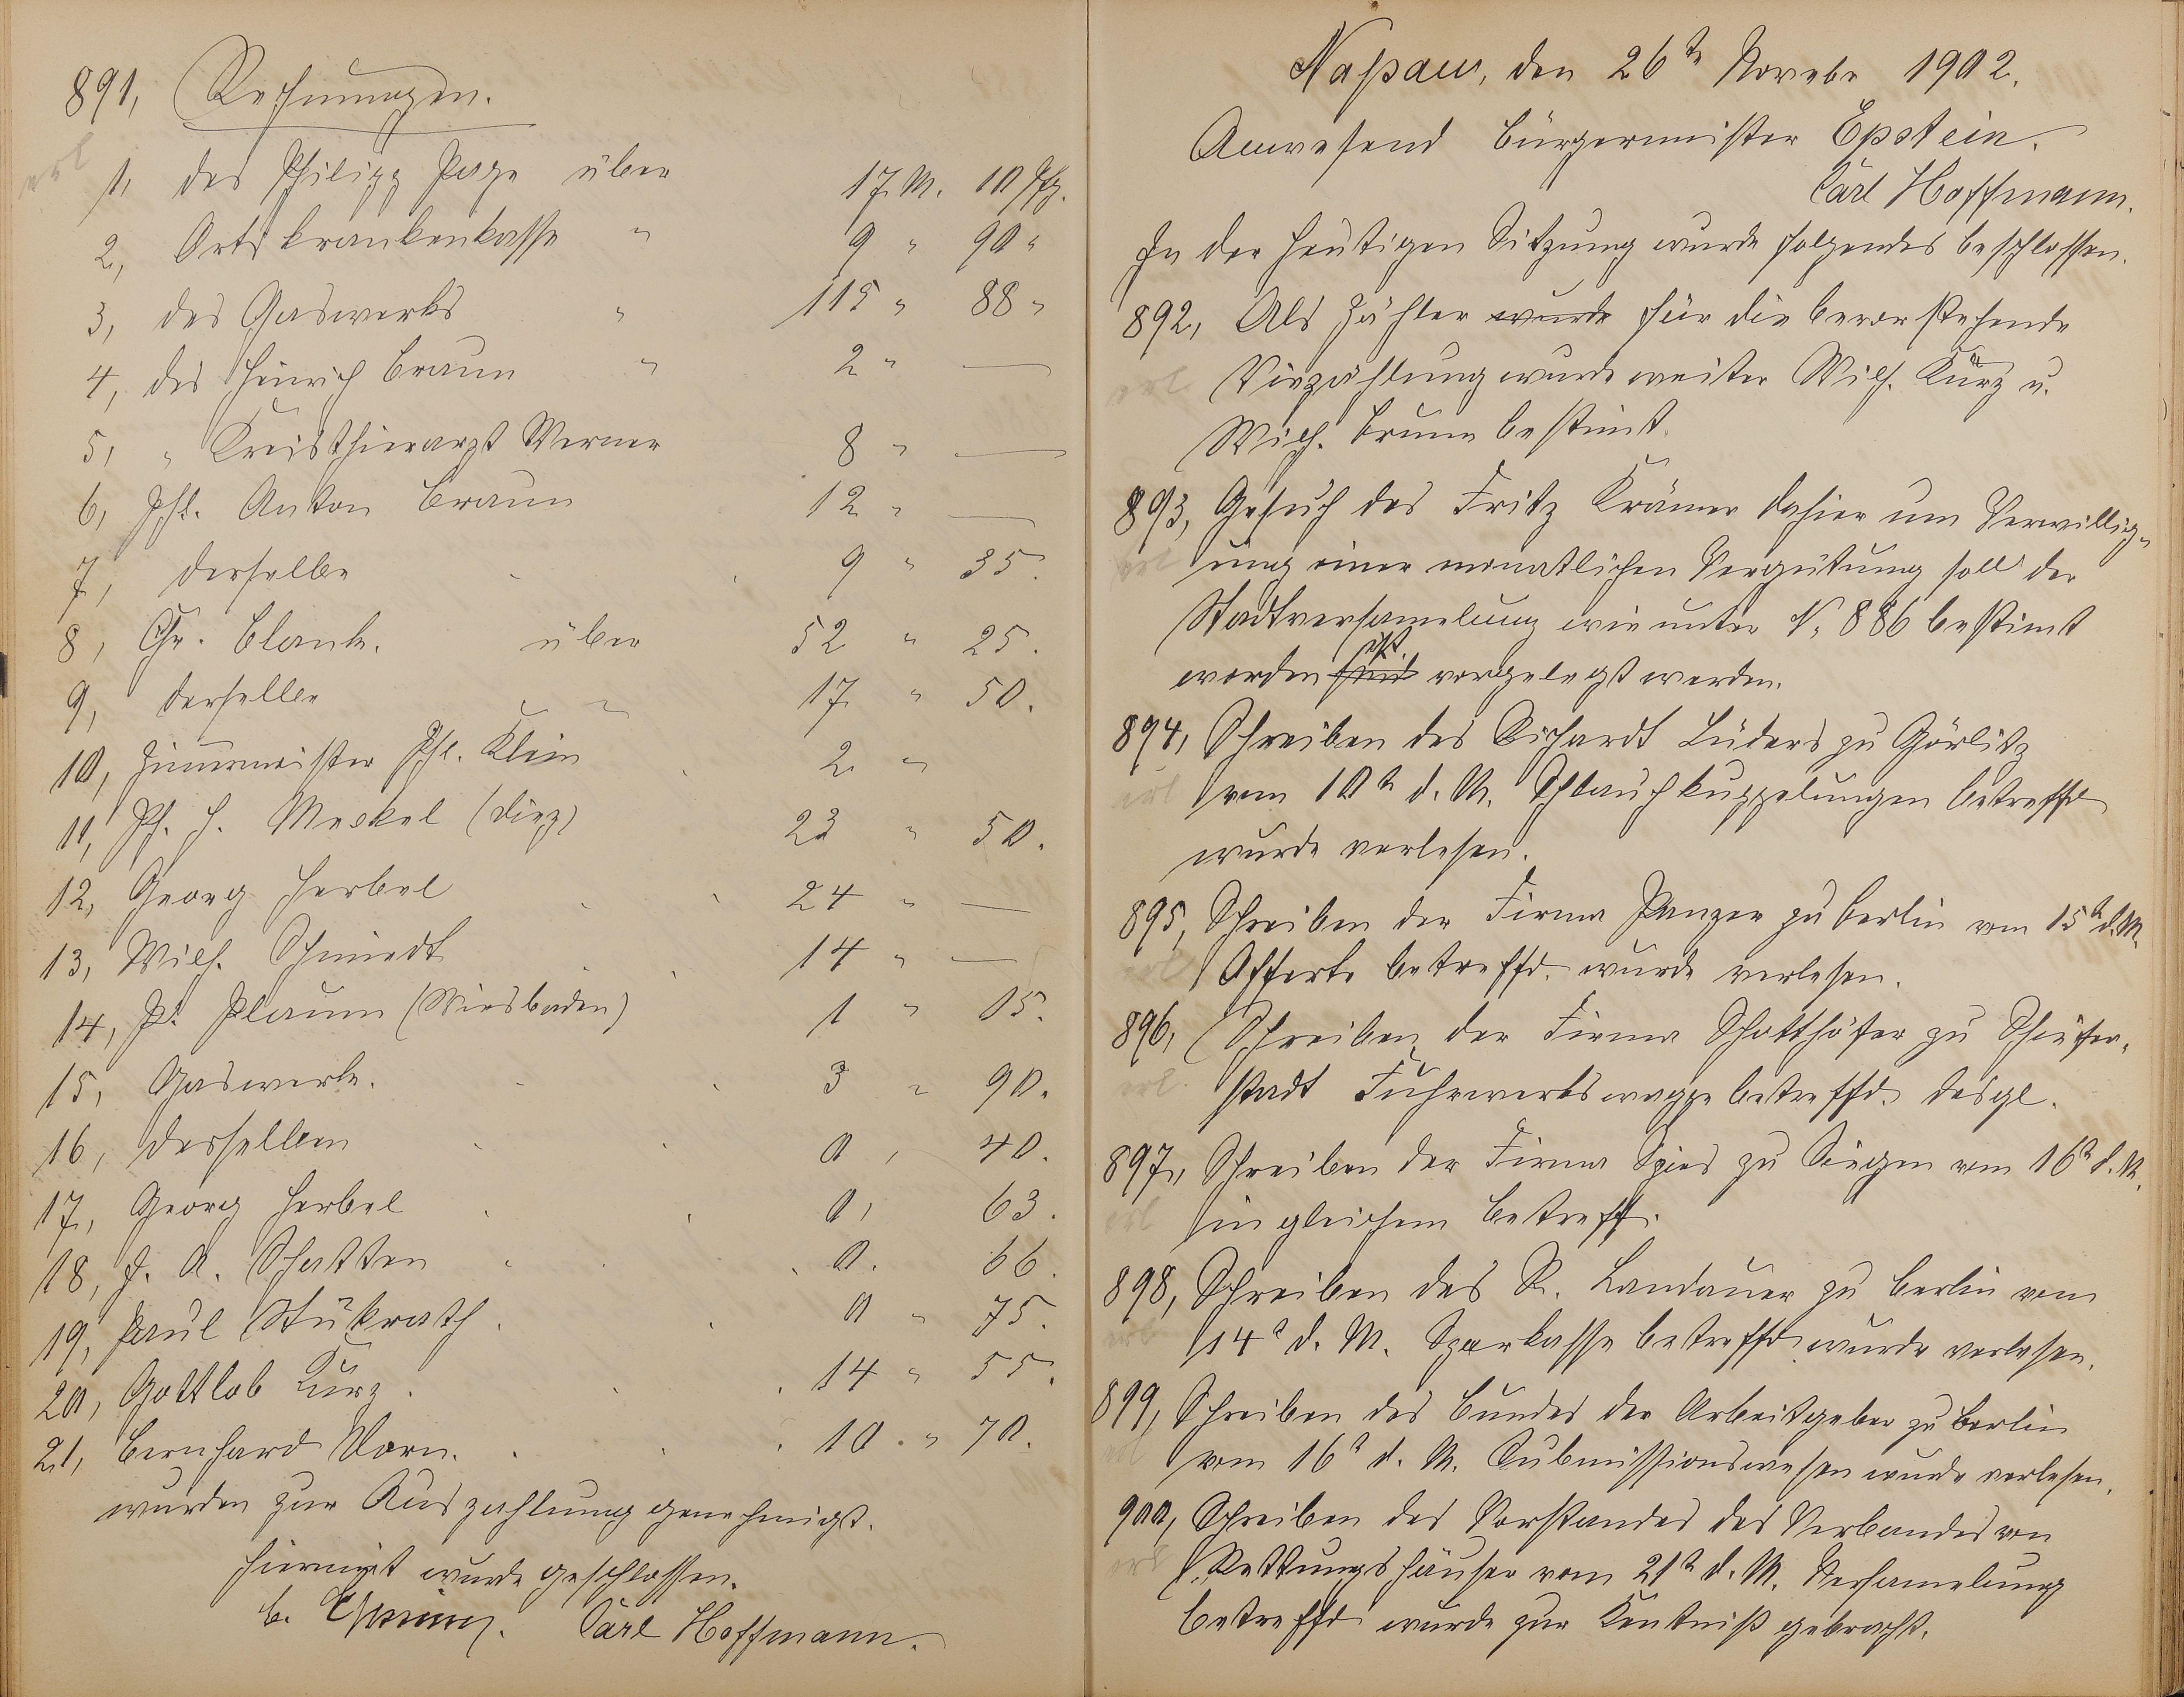 891, Rechnungen.
erl
1, des Philipp Paze über 17 M. 10 Pfg.
2, Ortskrankenkasse " 9 " 90 "
3, des Gaswerks " 115 " 88 "
4, des Heinrich Braun " 2 " —
5, " Kreisthierarzt Werner 8 " —
6, Phl. Anton Braun 12 " —
7, derselbe 9 " 35.
8, Chr. Blank. über 52 " 25.
9, derselbe " 17 " 50.
10, Zimermeister Phl. Klein 2 "
11, Ph. H. Meckel (Diez) 23 " 50.
12, Georg Herbel 24 " —
13, Wilh. Schmidt 14 " —
14, P. Plaum (Wiesbaden) 1 " 05.
15, Gaswerk. 3 " 90.
16, desselben 0, 40.
17, Georg Herbel 0, 63.
18, J. A. Schatten 0. 66.
19, Paul Stükrath. 0 " 75.
20, Gottlob Kurz. 14 " 55.
21, Bernhard Dorn. 10. " 70.
wurden zur Auszahlung genehmigt.
Hiermit wurde geschlossen.
Carl Hoffmann.
Naßau, den 26t Novebr 1902.
Anwesend Bürgermeister Epstein.
Carl Hoffmann.
In der heutigen Sitzung wurde folgendes beschlossen.
892, Als Zähler wurde für die bevorstehende
erl Viezählung wurde weiter Wilh. Kurz u.
Wilh. Brum bestimt.
893, Gesuch des Fritz Krämer dahier um Verwillig-
erl ung einer monatlichen Vergütung soll der
Stadtversamelung wie unter N. 886 bestimt
worden sind ist vorgelegt werden.
894, Schreiben des Richardt Lüders zu Görlitz
erl vom 10t d. M. Schlauchkuppelungen betreffd
wurde verlesen.
895, Schreiben der Firma Panzer zu Berlin vom 15t d. M.
erl Offerte betreffd. wurde verlesen.
896, Schreiben der Firma Schotthöfer zu Schiefer-
erl. stadt Fuhrwerkswagge betreffd. desgl.
897, Schreiben der Firma Spies zu Siegen vom 16t d. M.
erl in gleichem Betreff.
898, Schreiben des R. Landauer zu Berlin vom
erl 14t d. M. Sparkasse betreffd wurde verlesen.
899, Schreiben des Bundes der Arbeitgeber zu Berlin
erl vom 16t d. M. Submissionswesen wurde verlesen.
900, Schreiben des Vorstandes des Verbandes von
erl Rettungshäuser vom 21t d. M. Versamelung
betreffd wurde zur Kentniß gebracht.